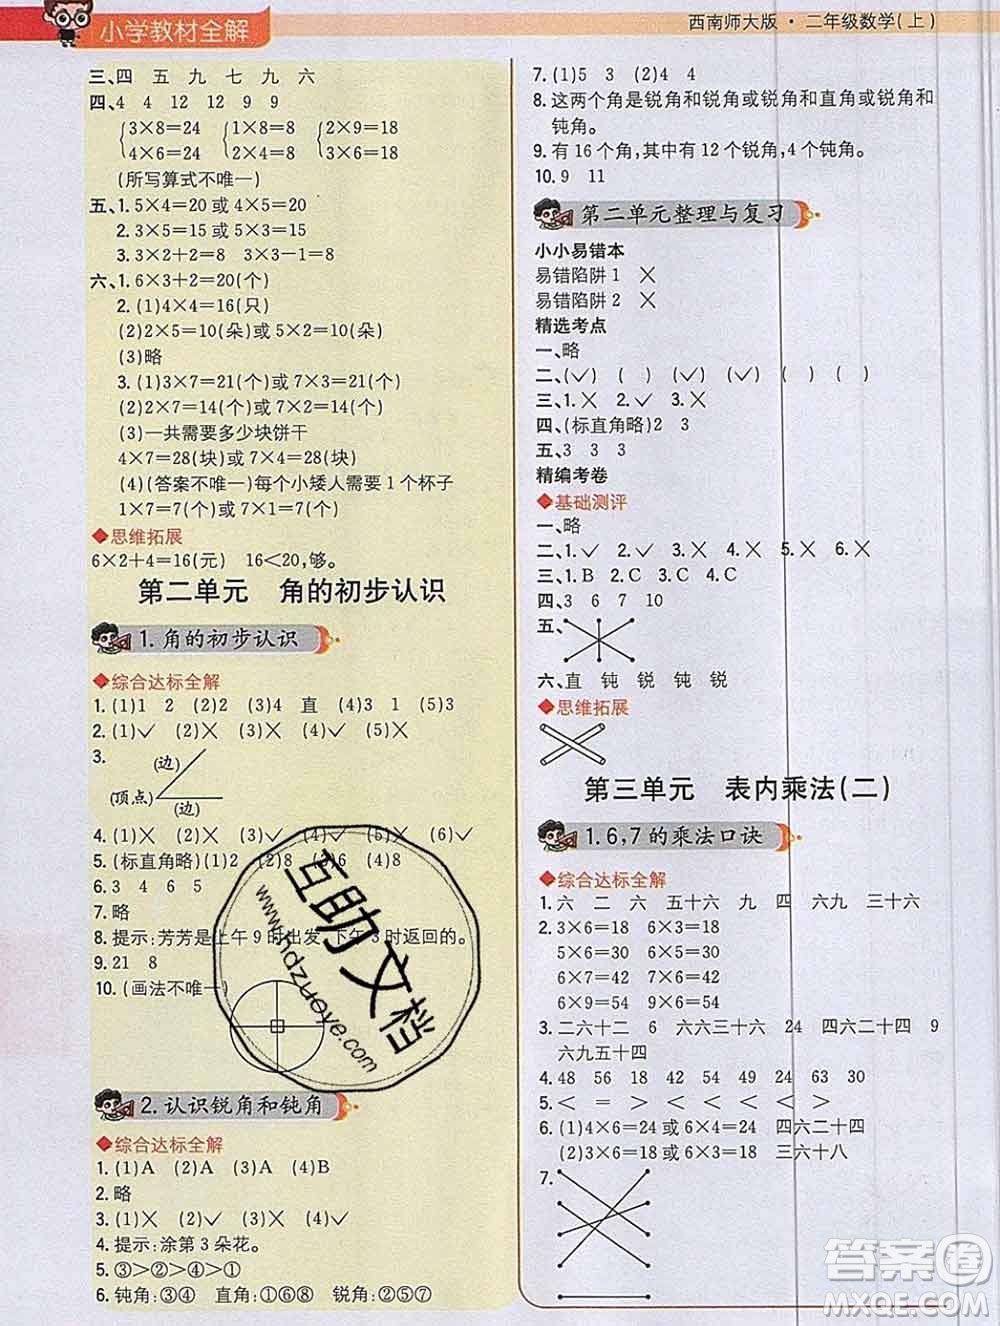 小学教材全解
西南师大版·二年级数学(上)
三、四 五 九 七 九 六
四、4 4 12 12 9 9
3×8=24 1×8=8 2×9=18
4×6=24 2×4=8 3×6=18
(所写算式不唯一)
五、1. 5×4=20 或 4×5=20
2. 3×5=15 或 5×3=15
3. 3×2+2=8 3×3-1=8
六、1. 6×3+2=20(个)
2. (1)4×4=16(只)
(2)2×5=10(朵)或 5×2=10(朵)
(3)略
3. (1)3×7=21(个)或 7×3=21(个)
(2)2×7=14(个)或 7×2=14(个)
(3)一共需要多少块饼干
4×7=28(块)或 7×4=28(块)
(4)(答案不唯一)每个小矮人需要 1 个杯子
7×1=7(个)或 1×7=7(个)
◆思维拓展
6×2+4=16(元) 16<20,够。
第二单元 角的初步认识
1. 角的初步认识
◆综合达标全解
1. (1)1 2 (2)2 (3)4 直 (4)3 1 (5)3
2. (1)✓ (2)× (3)✓ (4)× (5)×
3.
(边)
(顶点)
(边)
4. (1)× (2)× (3)✓ (4)✓ (5)× (6)✓
5. (标直角略)(1)2 (2)8 (3)6 (4)8
6. 3 4 6 5
7. 略
8. 提示:芳芳是上午 9 时出发,下午 3 时返回的。
9. 21 8
10. (画法不唯一)
2. 认识锐角和钝角
◆综合达标全解
1. (1)A (2)A (3)A (4)B
2. 略
3. (1)× (2)✓ (3)× (4)✓
4. 提示:涂第 3 朵花。
5. ③>②>④>①
6. 钝角:③④ 直角:①⑥⑧ 锐角:②⑤⑦
7. (1)5 3 (2)4 4
8. 这两个角是锐角和锐角或锐角和直角或锐角和
钝角。
9. 有 16 个角,其中有 12 个锐角,4 个钝角。
10. 9 11
第二单元整理与复习
小小易错本
易错陷阱 1 ×
易错陷阱 2 ×
精选考点
一、略
二、(✓) ( ) (✓) (✓) ( ) ( ) (✓)
三、1. × 2. ✓ 3. ×
四、(标直角略)2 3
五、3 3 3
精编考卷
◆基础测评
一、略
二、1. ✓ 2. ✓ 3. × 4. × 5. × 6. ×
三、1. B 2. B 3. C 4. C
四、3 6 7 10
五、
六、直 钝 锐 钝 锐
◆思维拓展
第三单元 表内乘法(二)
1. 6,7 的乘法口诀
◆综合达标全解
1. 六 二 六 五十六 九 四 六九 三十六
2. 3×6=18 6×3=18
5×6=30 6×5=30
6×7=42 7×6=42
6×9=54 9×6=54
3. 二六十二 6 六六三十六 24 四六二十四 9
六九五十四
4. 48 56 18 36 54 63 30
5. < = < > < < >
6. (1)4×6=24 或 6×4=24 四六二十四
(2)3×6=18 或 6×3=18 三六十八
7.
互助文档
www.hdzuoye.com
答案圈
MXQE.COM